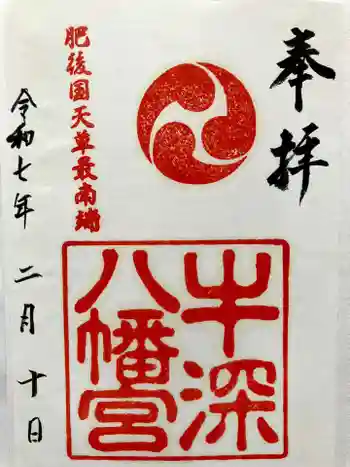 奉拝
肥後国天草最南端
牛深
八幡宮
令和七年 二月 十日